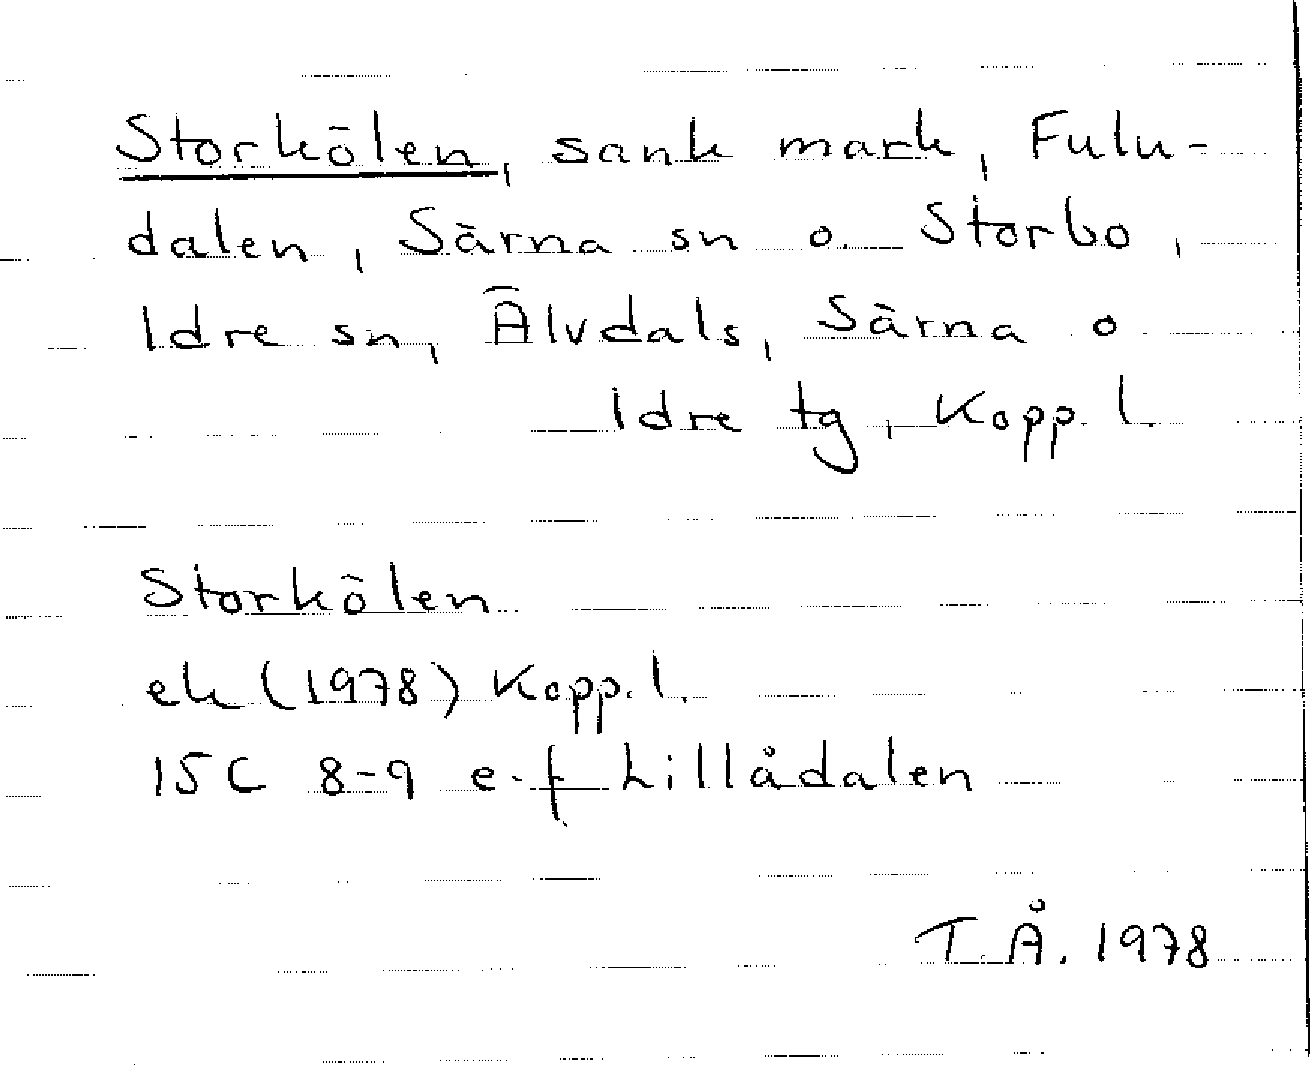 Storkölen, sank mark, Fulu-
dalen, Särna sn o. Storbo,
Idre sn, Älvdals, Särna o
Idre tg, Kopp. l.
Storkölen
ek (1978) Kopp. l.
15C 8-9 e-f Lillådalen
T.Å. 1978